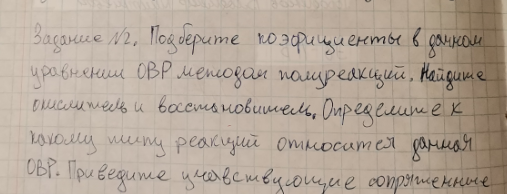 Задание №2. Подберите коэфициенты в данном
уравнении ОВР методом полуреакций. Найдите
окислитель и восстановитель. Определите к
какому типу реакций относится данная
ОВР. Приведите учавствующие сопряженные